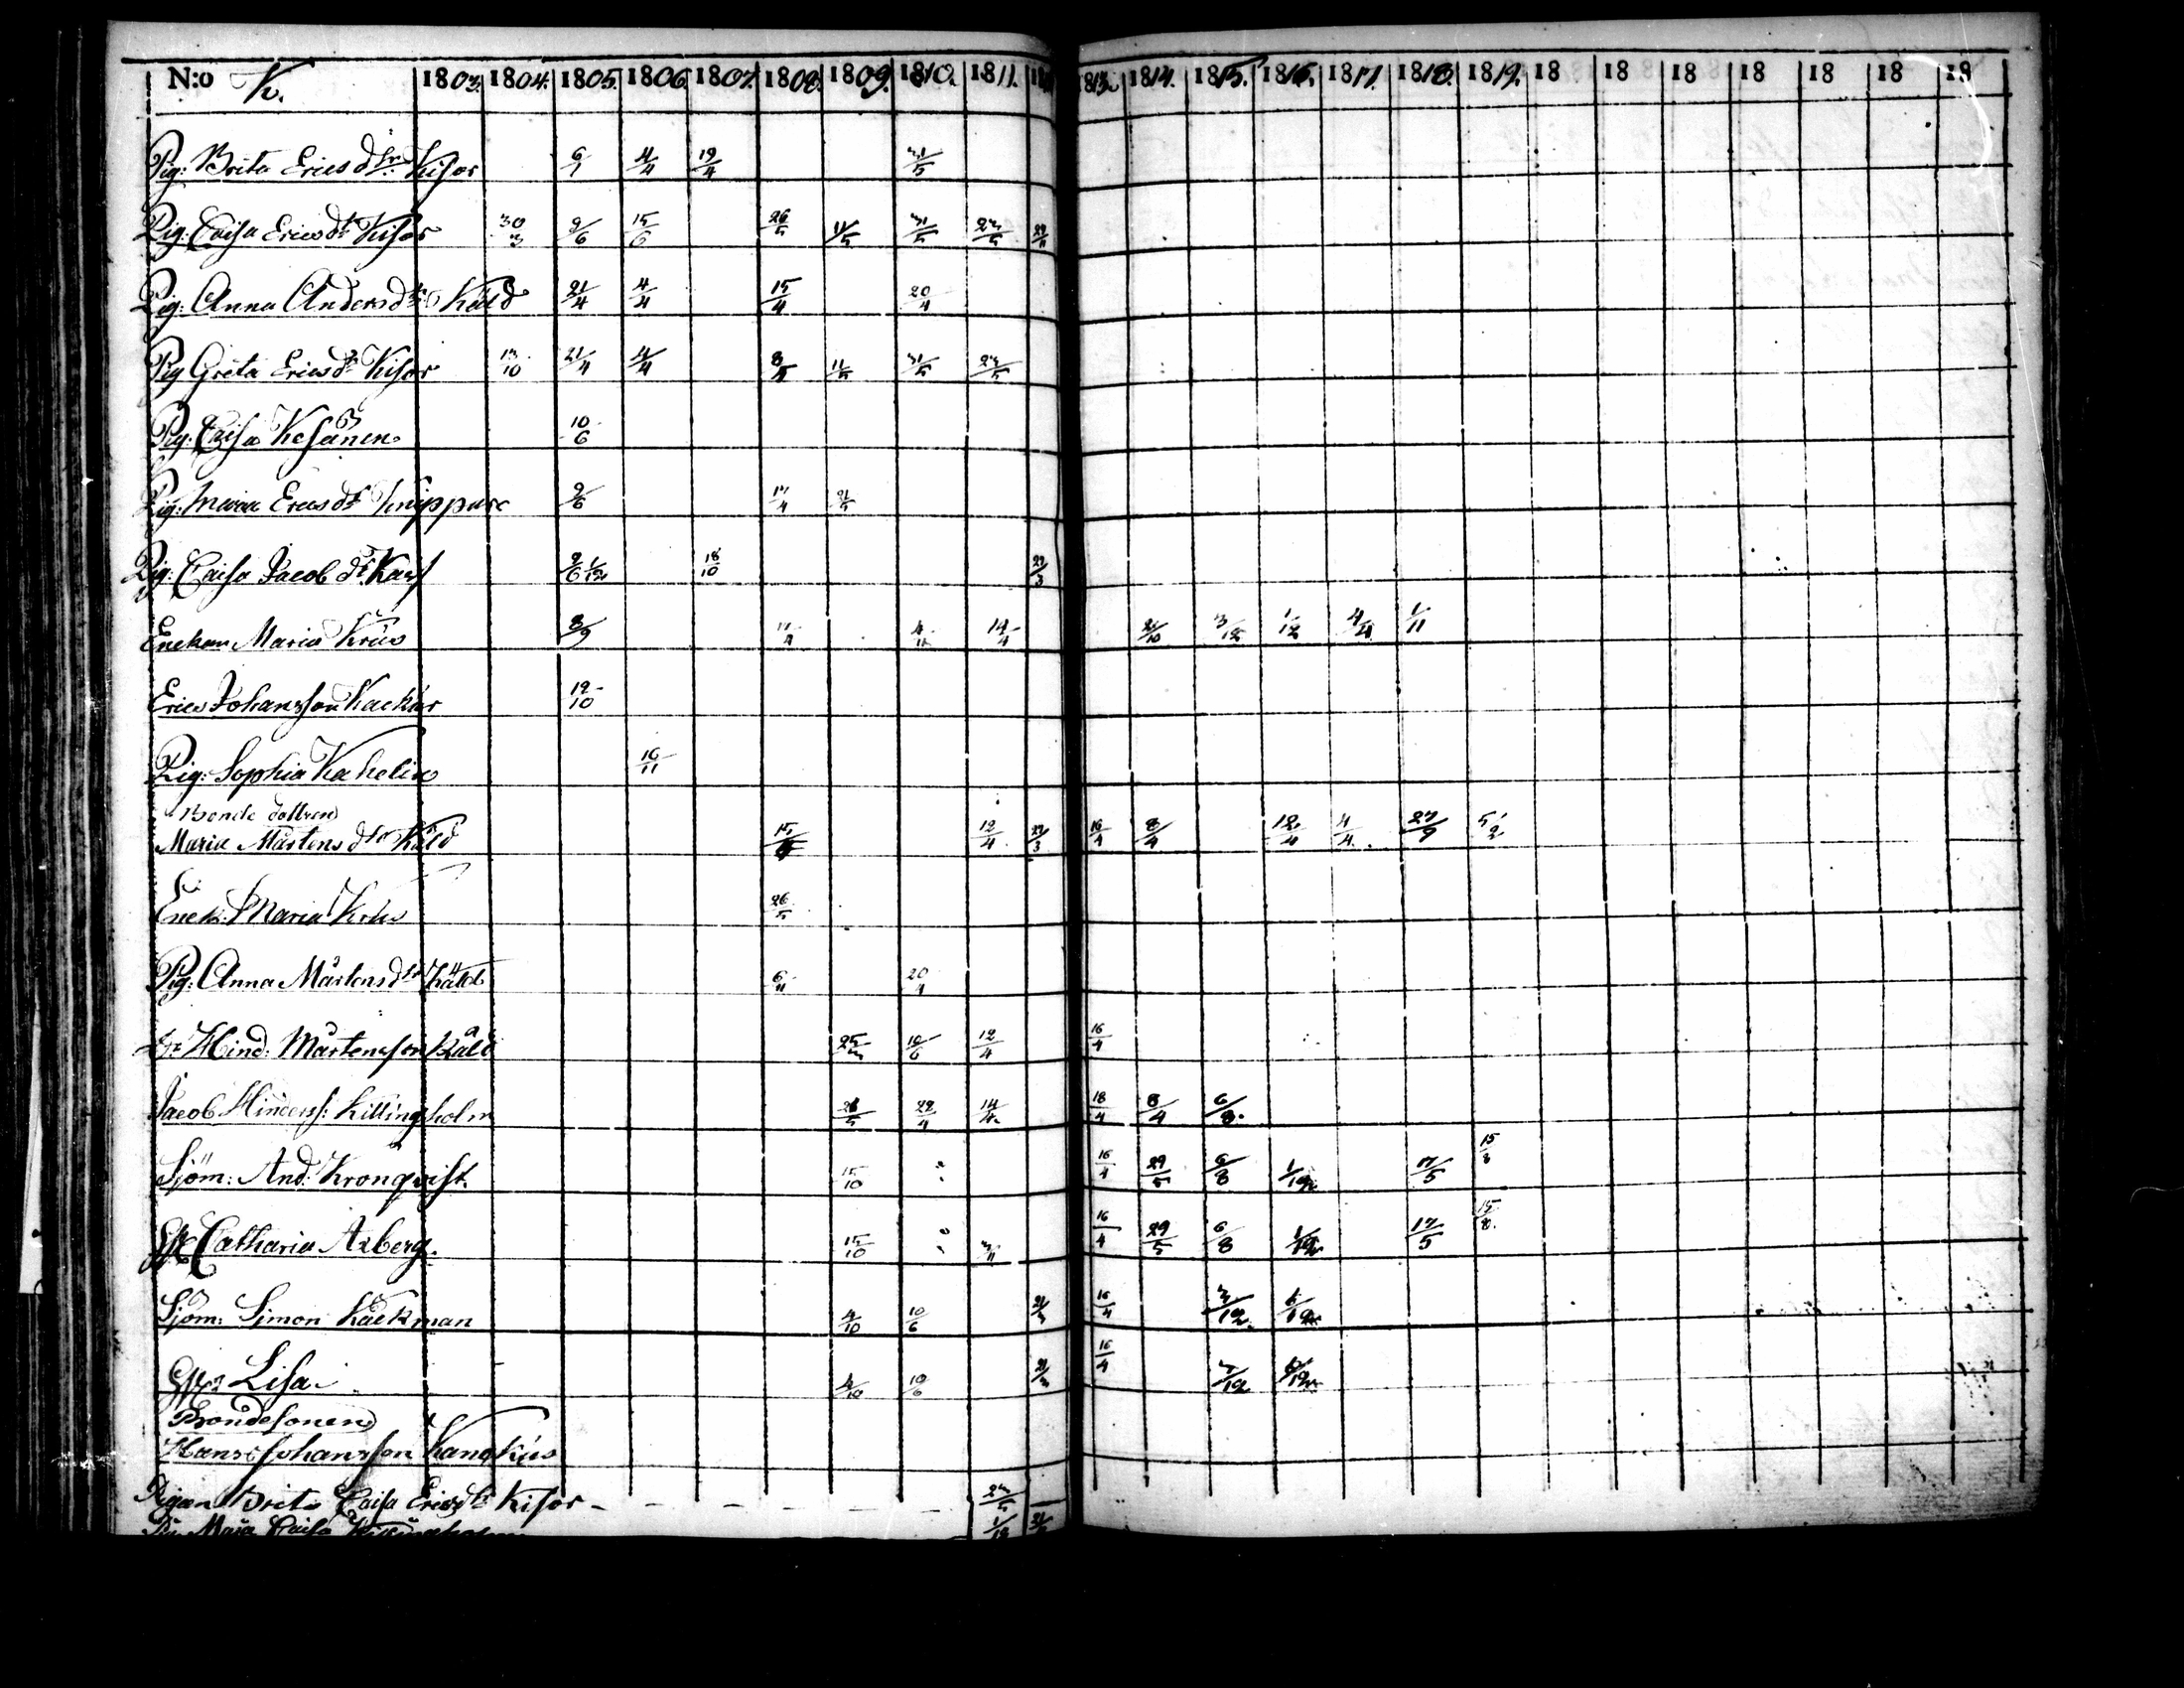 N:o K. 1803. 1804. 1805. 1806. 1807. 1808. 1809. 1810. 1811. 18 1813. 1814. 1815. 1816. 1817. 1818. 1819. 18 18 18 18 18 18 18
Pig: Brita Ericsdtr Kisor 6/1 4/4 19/4 31/5
Pig: Caisa Ericsdr Kisor 30/3 9/6 15/6 26/5 11/5 31/5 23/5
Pig: Anna Andersdr Käld 21/4 4/4 15/4 20/4
Pig Greta Ericsdr Kisor 13/10 21/4 4/4 11/5 31/5 23/5
Pig: Caisa Kesänen 10/6
Pig: Maria Ericsdr Knippare 9/6 17/4
Pig: Caisa Jacobdr 9/6 18/10
Enckan Maria Krus 8/9 14/4 3/12 1/12 1/11
Erics Johansson Kackur 12/10
Pig: Sophia Kahelin 16/11
Bonde dottren
Maria Mårtensdtr Käld 12/4 16/4 8/4 12/4 4/4 27/9 5/2
Enck: Maria Krus 26/5
Pig: Anna Mårtensdtr Käld 20/4
Dr: Hind: Mårtensson Käld 10/6 12/4 16/4
Jacob Hinderss: Killingholm 22/4 14/4 18/4 8/4 6/8
Sjöm: And: Kronqvist. 15/10 " 16/4 29/5 6/8 1/12 17/5 15/8
Catharia Axberg. 15/10 " 16/4 29/5 6/8 1/12 17/5 15/8
Sjöm: Simon Käckman 4/10 10/6 16/4 3/12
Lisa 4/10 10/6 16/4 3/12
Bondesonen
Hans Johansson Kangkus
Pigan Brita Caisa Ericsdr Kisor 23/5
Maja Caisa 1/12